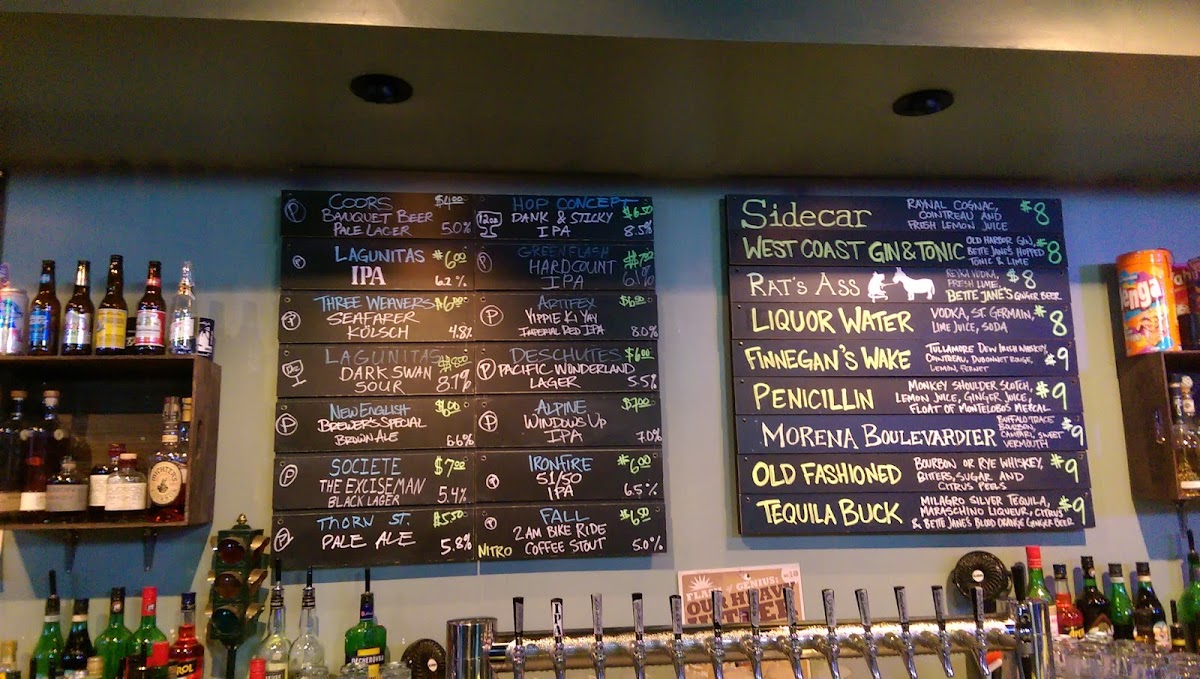 COORS $4.00
BANQUET BEER
PALE LAGER 5.0%
LAGUNITAS $6.00
IPA 6.2%
THREE WEAVERS $6.00
SEAFARER
KÖLSCH 4.8%
LAGUNITAS
DARK SWAN
SOUR 8.1%
NEW ENGLISH $6.00
BREWER'S SPECIAL
BROWN ALE 6.6%
SOCIETE $7.00
THE EXCISEMAN
BLACK LAGER 5.4%
THORN ST. $5.50
PALE ALE 5.8%
HOP CONCEPT $6.50
12oz DANK & STICKY
IPA 8.5%
GREEN FLASH
HARDCOUNT
IPA 6.1%
ARTIFEX
YIPPIE KI YAY
IMPERIAL RED IPA 8.0%
DESCHUTES $6.00
PACIFIC WONDERLAND
LAGER 5.5%
ALPINE $7.00
WINDOWS UP
IPA 7.0%
IRONFIRE $6.00
51/50
IPA 6.5%
FALL $6.50
2AM BIKE RIDE
NITRO COFFEE STOUT 5.0%
Sidecar RAYNAL COGNAC, $8
COINTREAU AND
FRESH LEMON JUICE
WEST COAST GIN & TONIC OLD HARBOR GIN, $8
BETTE JANE'S HOPPED
TONIC & LIME
RAT'S ASS REYKA VODKA, $8
FRESH LIME,
BETTE JANE'S GINGER BEER
LIQUOR WATER VODKA, ST. GERMAIN, $8
LIME JUICE, SODA
FINNEGAN'S WAKE TULLAMORE DEW IRISH WHISKEY, $9
COINTREAU, DUBONNET ROUGE,
LEMON, FERNET
PENICILLIN MONKEY SHOULDER SCOTCH, $9
LEMON JUICE, GINGER JUICE,
FLOAT OF MONTELOBOS MEZCAL
MORENA BOULEVARDIER BUFFALO TRACE $9
BOURBON,
CAMPARI, SWEET
VERMOUTH
OLD FASHIONED BOURBON OR RYE WHISKEY, $9
BITTERS, SUGAR AND
CITRUS PEELS
TEQUILA BUCK MILAGRO SILVER TEQUILA, $9
MARASCHINO LIQUEUR, CITRUS
& BETTE JANE'S BLOOD ORANGE GINGER BEER
Jenga
IPA